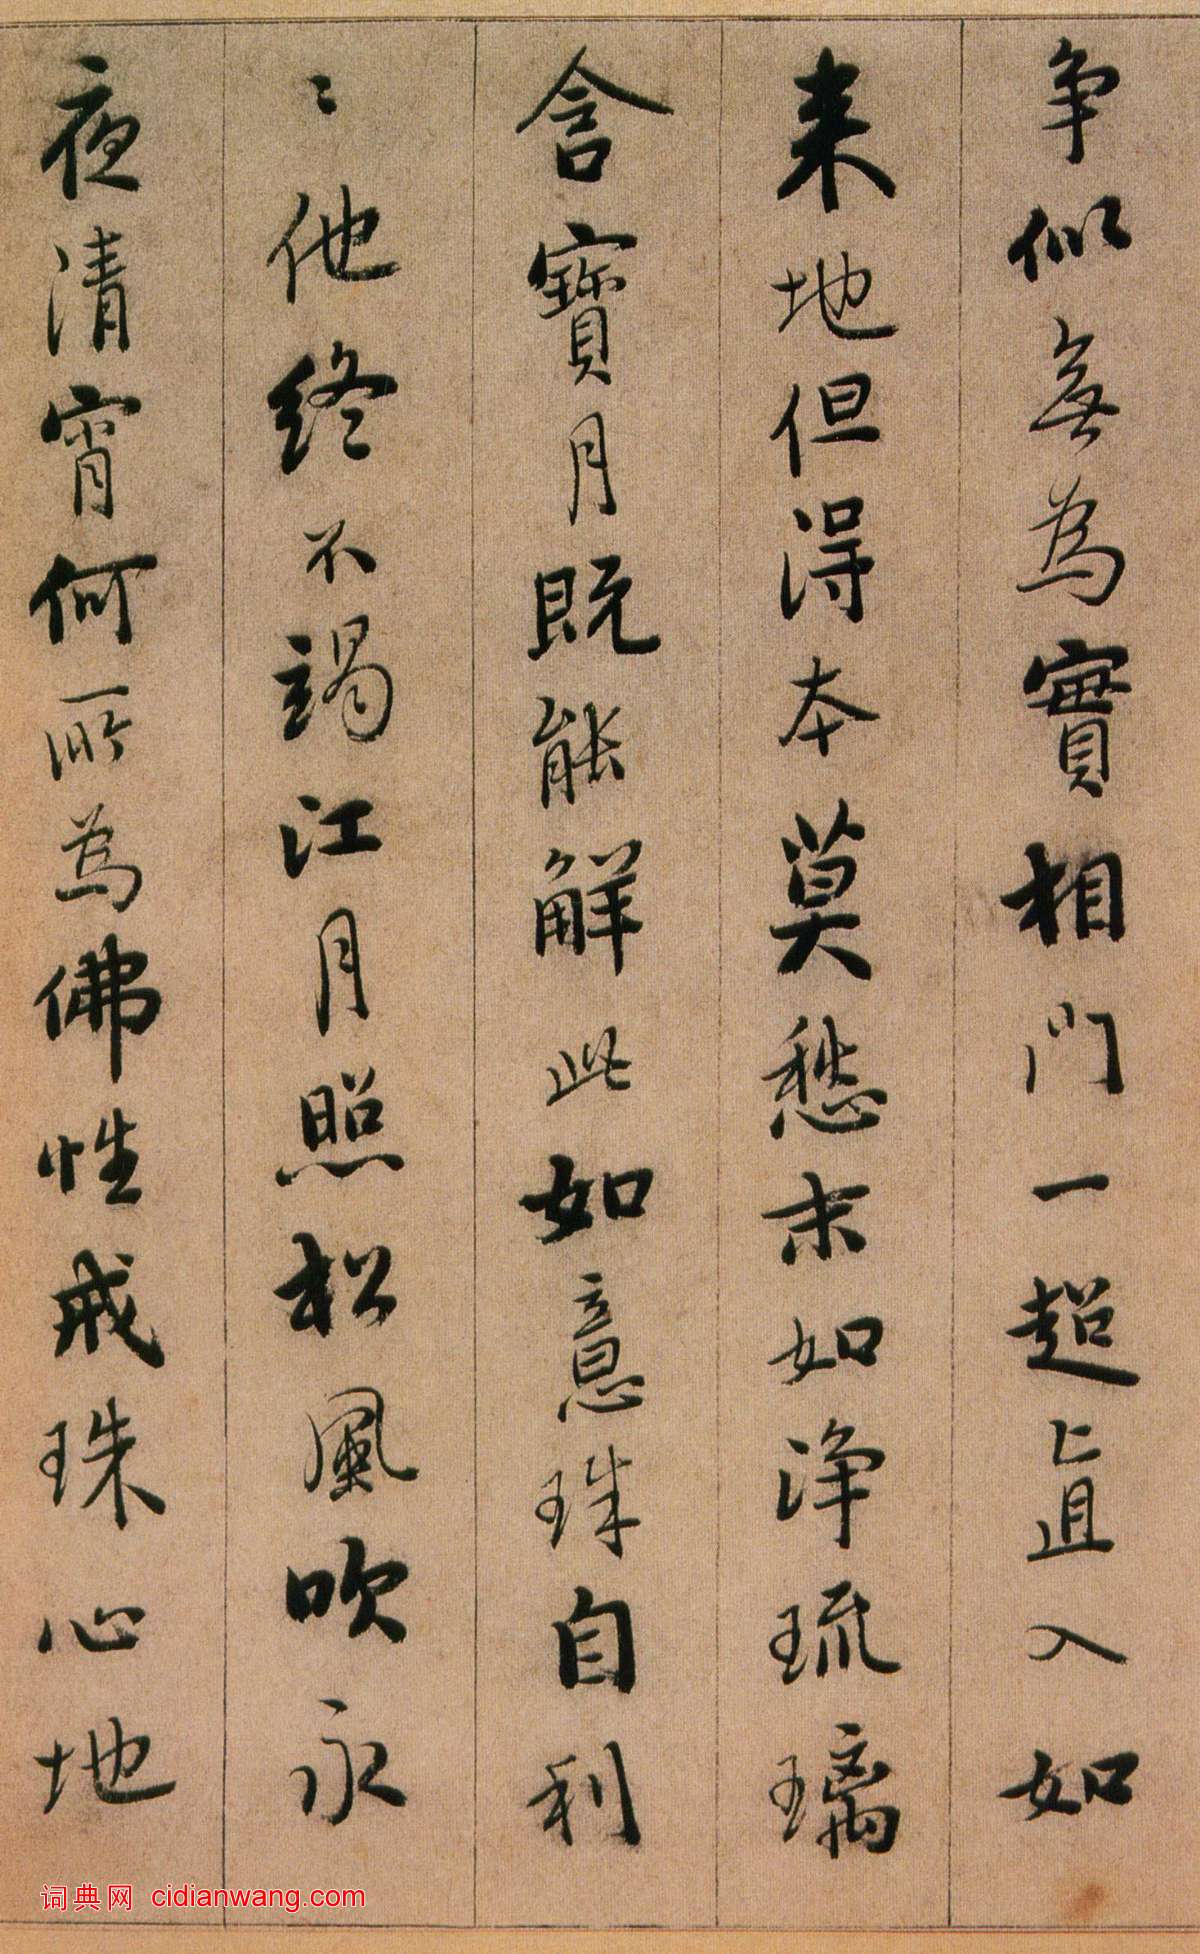 争似無為實相門一超直入如
来地但得本莫愁末如淨琉璃
含寶月既能解此如意珠自利
〻他終不竭江月照松風吹永
夜清宵何所為佛性戒珠心地
词典网 cidianwang.com